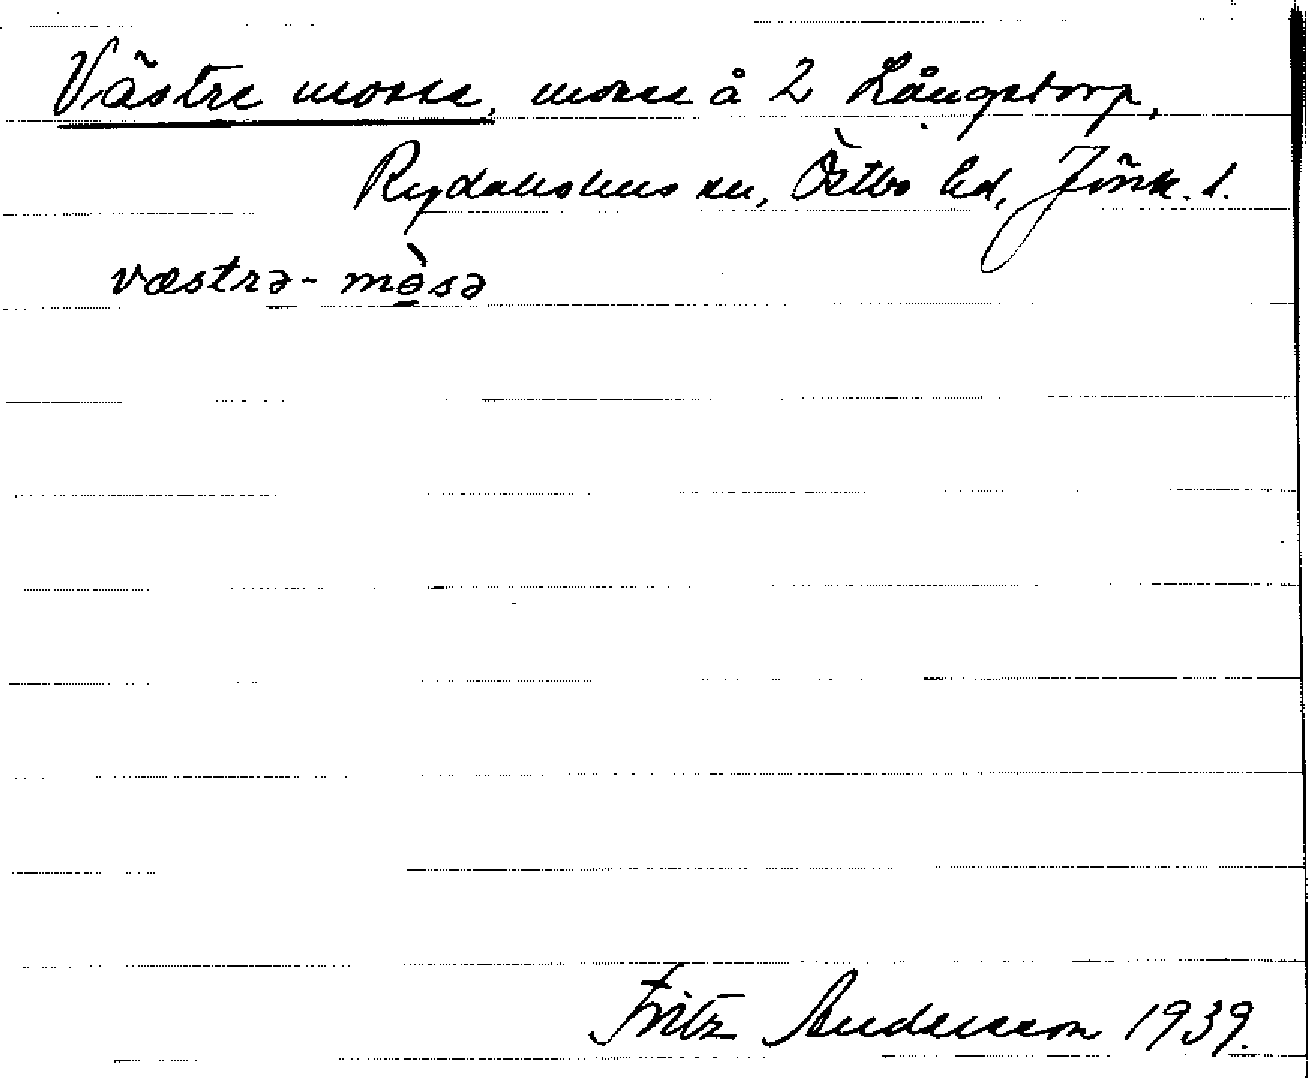 Västre mosse, mosse å 2 Långstorp,
Rydaholms sn, Östbo hd, Jönk. l.
væstrə - mòsə
Fritz Andersson 1939.